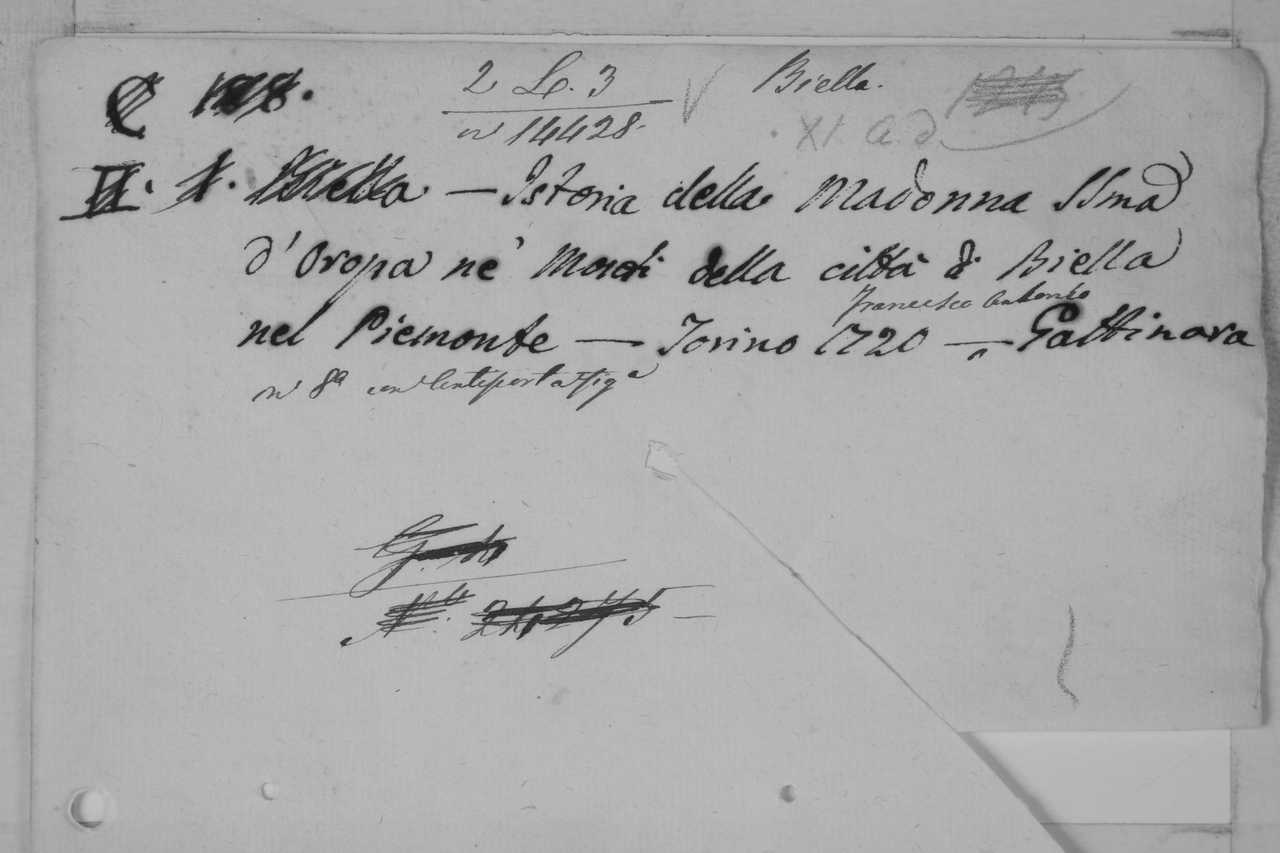 2 L. 3 Biella.
n 14428.
XI. a. d
II. Biella — Istoria della Madonna SSma
d'Oropa ne' Monti della città di Biella
Francesco Antonio
nel Piemonte — Torino 1720 — Gattinara
in 8° con antiporta fig.a